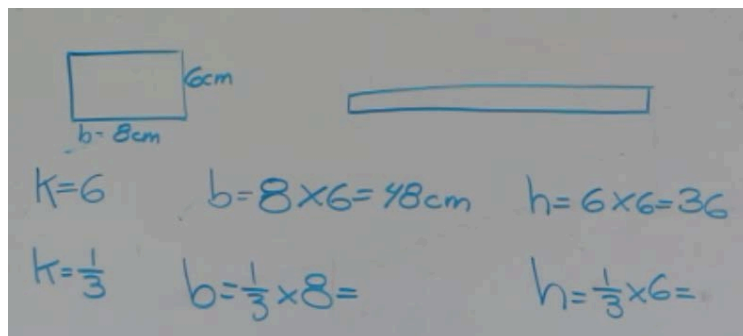 6cm
b- 8cm
k=6 b=8×6=48cm h=6×6=36
k=1/3 b=1/3×8= h=1/3×6=